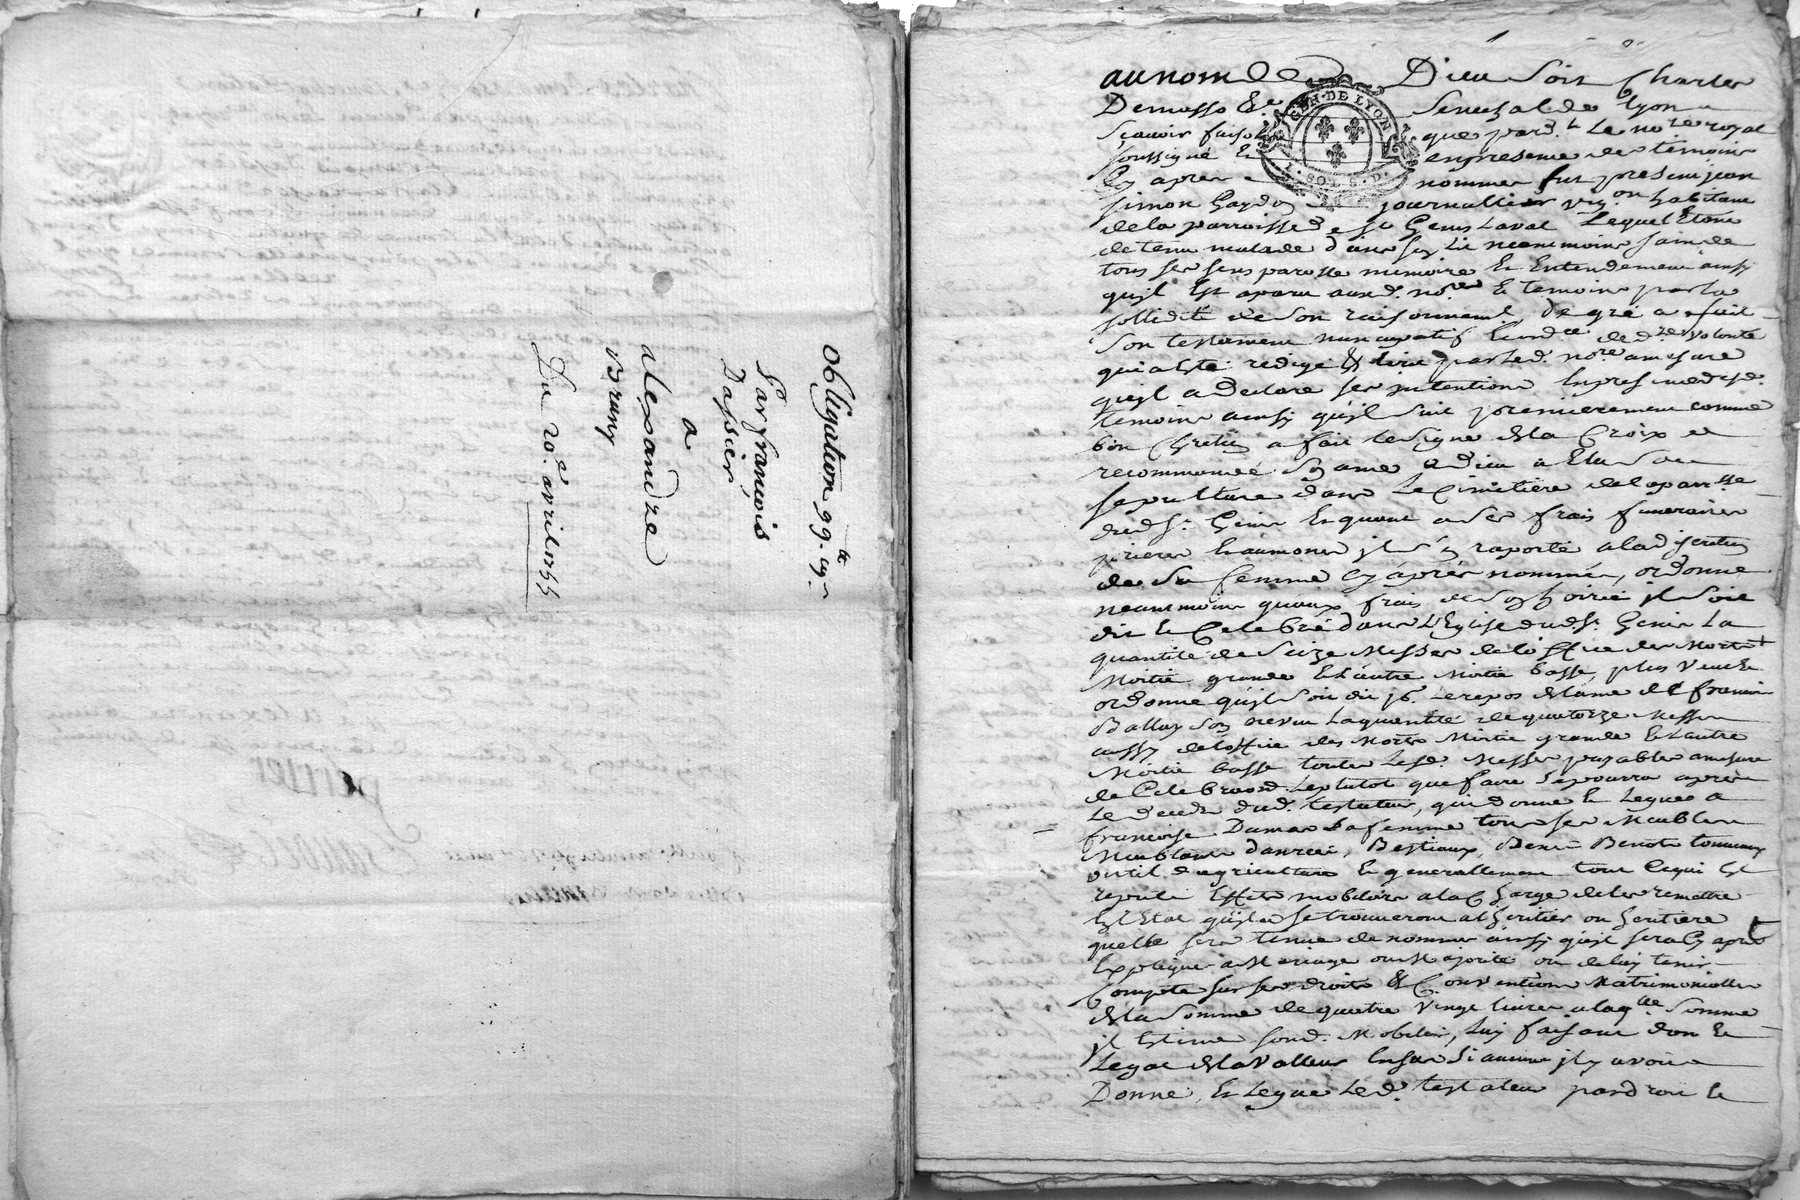 Obligation 99.tt 19.s
Par françois
Dassier
a
alexandre
Bruny
Du 20.e avril 1755
au nom de Dieu Soit Charles
Demasso &c Senechal de Lyon
Scavoir faisons que pard.t Le no.re royal
soussigné Et en presence des temoins
Cy apres nommes fut present jean
simon Gaydon journallier vig.on habitant
de la parroisse de St Genis Laval Lequel Etant
detenu malade dans son Lit neanmoins sain de
tous ses sens parolle memoire Et Entendement ainsy
qu'jl Est aparu aud. no.re Et temoins par la
sollidité de son raisonnement, de gré a fait
Son testement nuncupatif Et ord.ce de d.re volonté
qui a Eté redigé Et Ecrit par Led. no.re a mesure
qu'jl a declaré ses jntentions En presence desd.
temoins ainsy qu'jl suit premierement comme
bon Chretien a fait le signe de la Croix et
recommandé son ame a dieu a Elu Sa
sepulture dans Le Cimetiere de la parr.sse
dud St. Genis Et quant a Ses frais funeraires
prieres Et aumones jl s'en raporte a la discretion
de Sa femme Cy après nommée, ordonne
neanmoins qu'aux frais de son hoirie jl soit
dit Et Celebré dans L'Eglise dud. St. Genis La
quantité de Seize Messes de l'office des Morts
Moitié grande Et L'autre Moitié basse, plus veut Et
ordonne qu'jl soit dit p.r Le repos de L'ame de francois
Ballay Son neveu La quantité de quatorze Messes
aussy de l'office des Morts Moitié grande Et L'autre
Moitié basse toutes Lesd. Messes payables a mesure
de Celebration. Le plutot que faire Se pourra après
Le deces dud. testateur, qui donne Et Legue a
françoise Dumas Sa femme tous ses Meubles
Meublants danrées, Bestiaux, Benne Benots tonneaux
outil d'agriculture Et generallement tout Ce qui Est
reputé Effets mobiliers a la Charge de les remettre
En L'Etat qu'jls se trouveront a L'heritier ou heritiere
quelle sera tenue de nommer ainsy qu'jl sera Cy après
Expliqué a Mariage ou Majorité ou de luy tenir
Compte sur ses droits Et Conventions Matrimonialles
de la Somme de quatre vingt livres a laq.lle Somme
jl Estime sond. Mobilier, Luy faisant don Et
Legat de la valleur En sus Si aucune jl y avoit
Donne, Et Legue Led. testateur par droit de